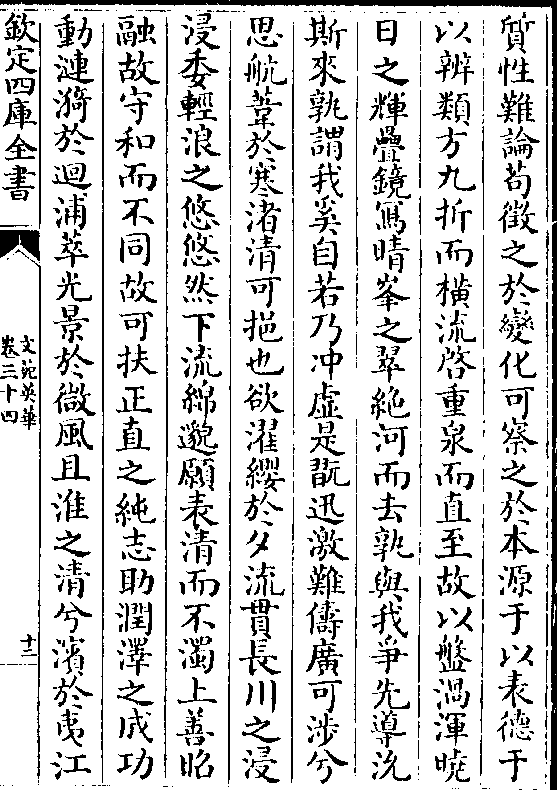 質性難論苟徵之於變化可察之於本源于以表德于
以辨類方九折而橫流啓重泉而直至故以盤渦渾曉
日之輝疊鏡寫晴峯之翠絶河而去孰與我爭先導沇
斯來孰謂我奚自若乃冲虛是翫迅激難儔廣可涉兮
思航葦於寒渚清可挹也欲濯纓於夕流貫長川之浸
浸委輕浪之悠悠然下流綿邈願表清而不濁上善昭
融故守和而不同故可扶正直之純志助潤澤之成功
動漣漪於迴浦萃光景於微風且淮之清兮濱於夷江
欽定四庫全書
文苑英華
卷三十四
十三